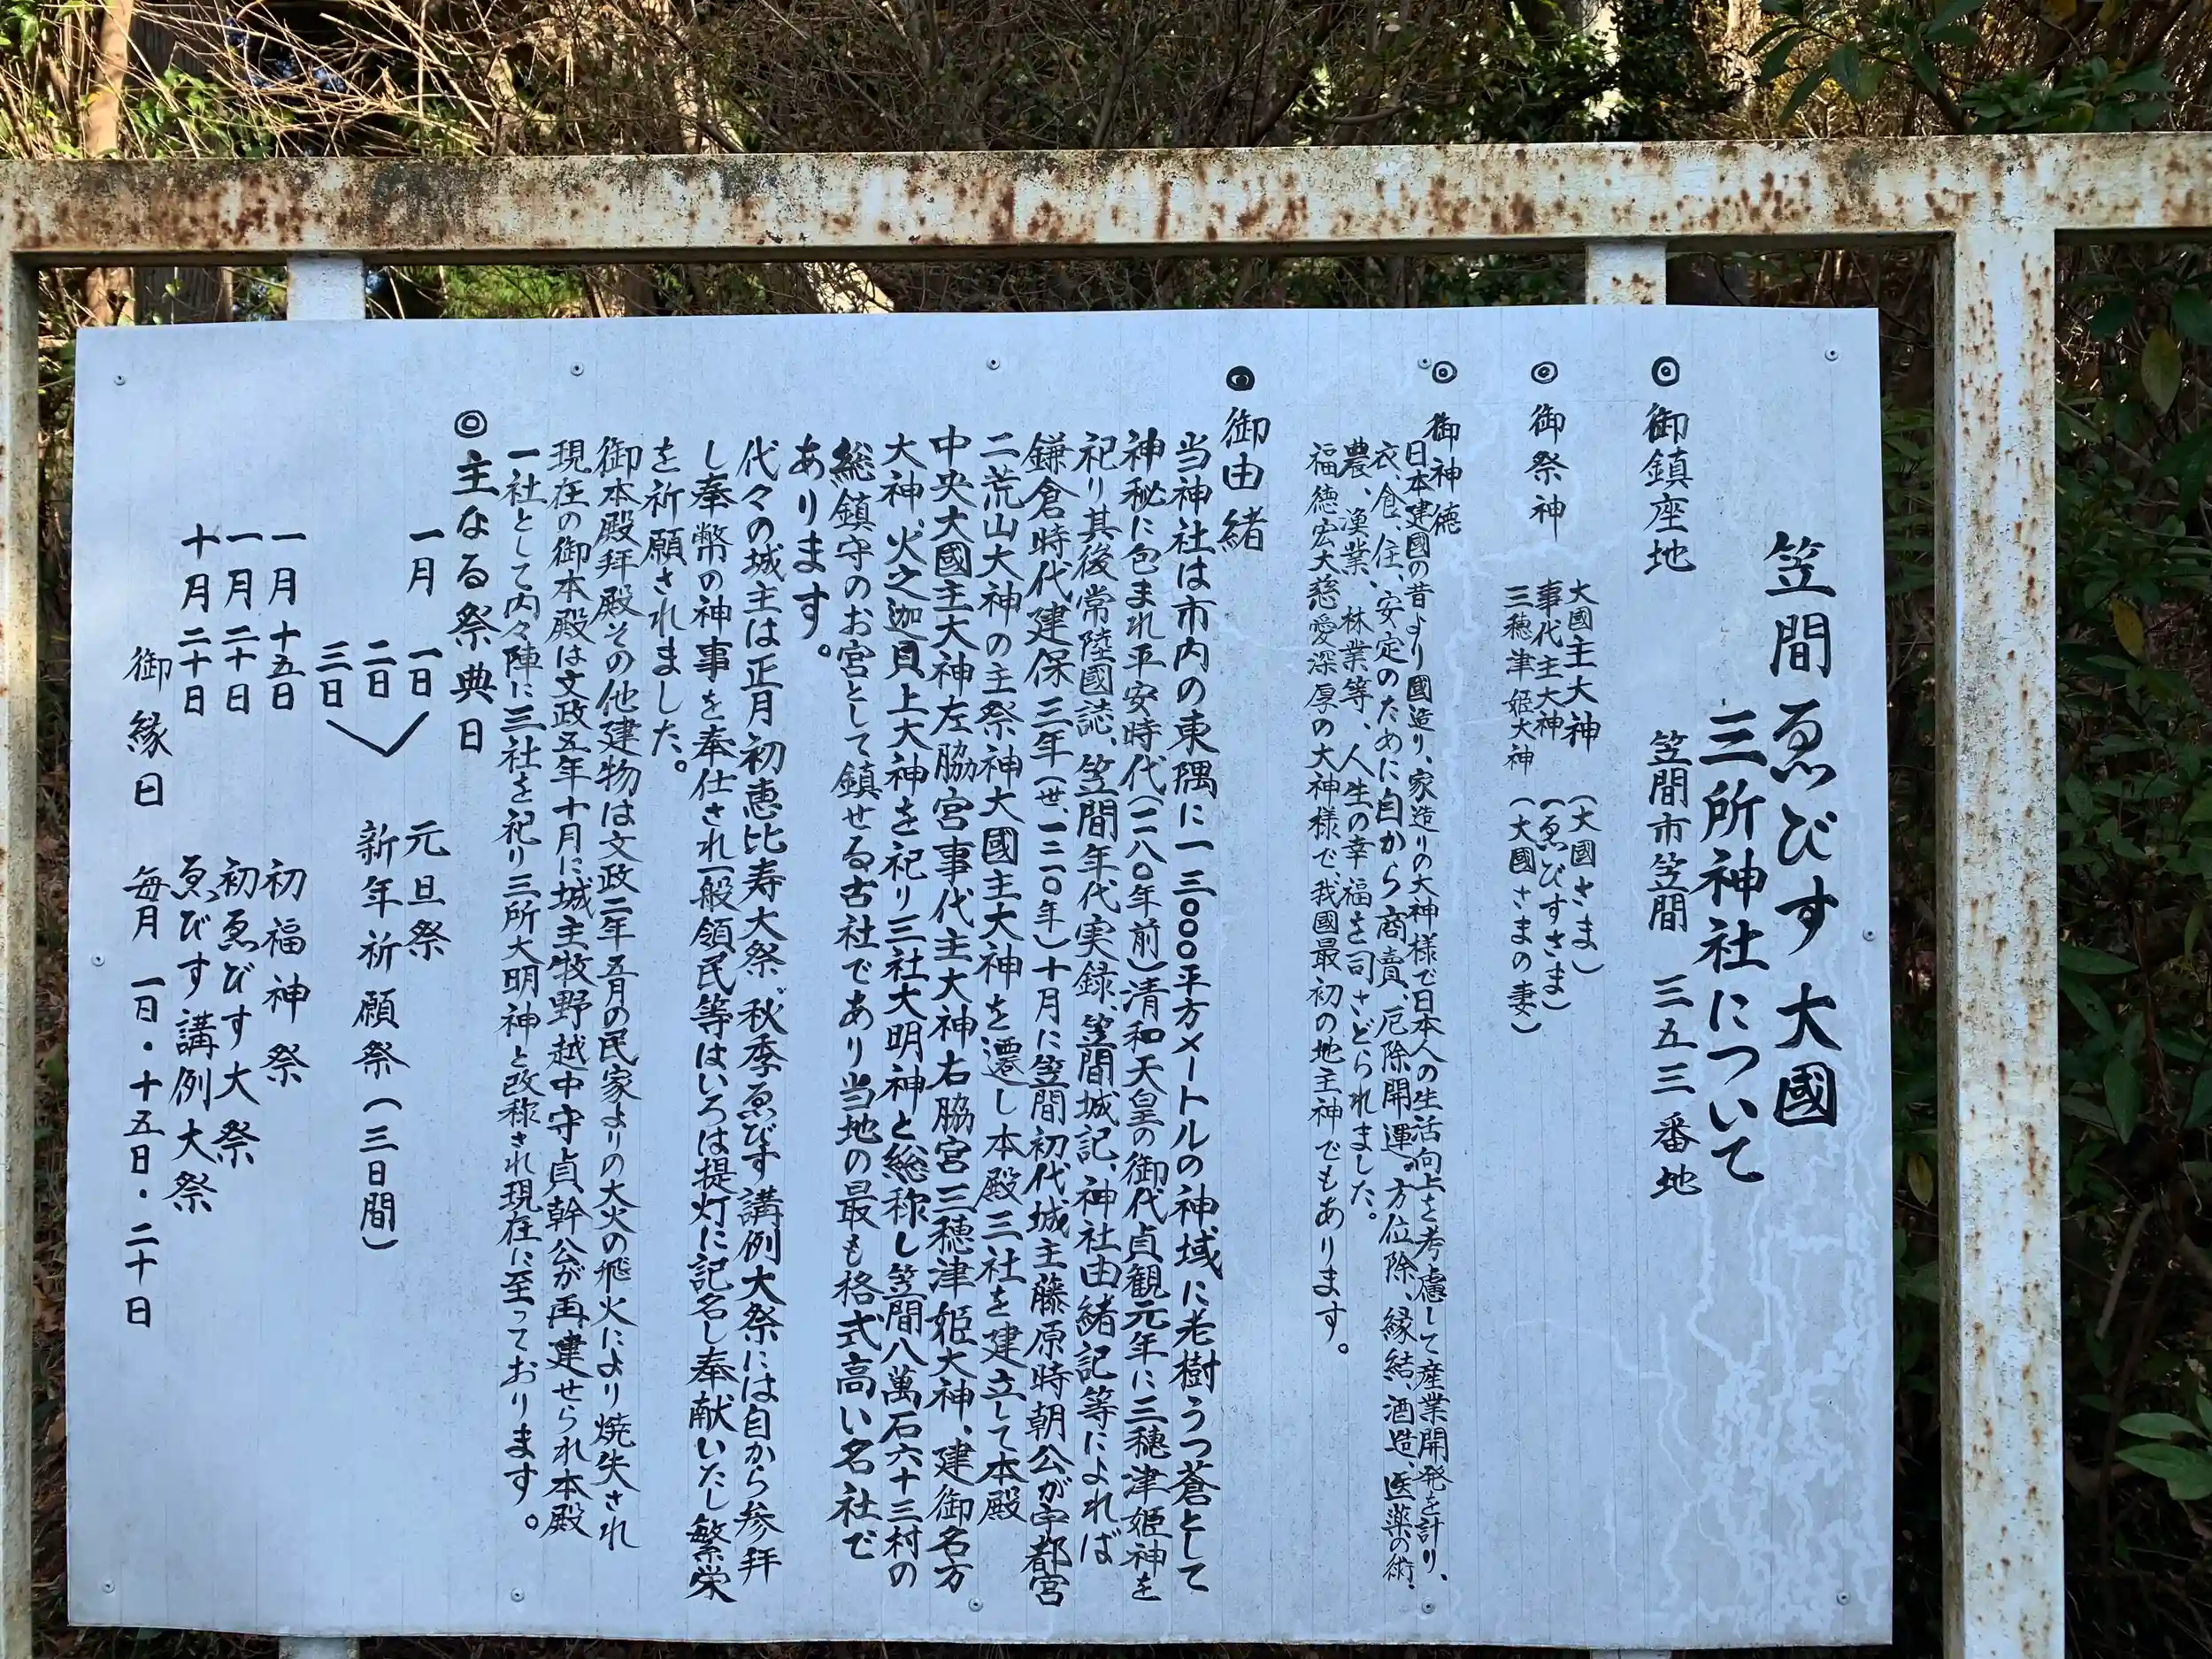 笠間ゑびす大國
三所神社について
◎御鎮座地 笠間市笠間 三五三番地
◎御祭神 大國主大神 (大國さま)
事代主大神 (ゑびすさま)
三穂津姫大神 (大國さまの妻)
◎御神徳
日本建國の昔より國造り、家造りの大神様で日本人の生活向上を考慮して産業開発を計り、
衣、食、住、安定のために自から商賣、厄除開運、方位除、縁結、酒造、医薬の術、
農、漁業、林業等、人生の幸福を司さどられました。
福徳宏大慈愛深厚の大神様で、我國最初の地主神でもあります。
◎御由緒
当神社は市内の東隅に一三〇〇〇平方メートルの神域に老樹うつ蒼として
神秘に包まれ平安時代(一一八〇年前)清和天皇の御代貞観元年に三穂津姫神を
祀り其後常陸國誌、笠間年代実録、笠間城記、神社由緒記等によれば
鎌倉時代建保三年(世、一二〇年)十月に笠間初代城主藤原時朝公が宇都宮
二荒山大神の主祭神大國主大神を遷し本殿三社を建立して本殿
中央大國主大神左脇宮事代主大神右脇宮三穂津姫大神、建御名方
大神、火之迦具土大神を祀り三社大明神と総称し笠間八萬石六十三村の
総鎮守のお宮として鎮せる古社であり当地の最も格式高い名社で
あります。
代々の城主は正月初恵比寿大祭、秋季ゑびす講例大祭には自から参拜
し奉幣の神事を奉仕され一般領民等はいろは提灯に記名し奉献いたし繁栄
を祈願されました。
御本殿拜殿その他建物は文政二年五月の民家よりの大火の飛火により焼失され
現在の御本殿は文政五年十月に城主牧野越中守貞幹公が再建せられ本殿
一社として内々陣に三社を祀り三所大明神と改称され現在に至っております。
◎主なる祭典日
一月 一日 元旦祭
二日 新年祈願祭(三日間)
三日
一月十五日 初福神祭
一月二十日 初ゑびす大祭
十月二十日 ゑびす講例大祭
御縁日 毎月 一日・十五日・二十日